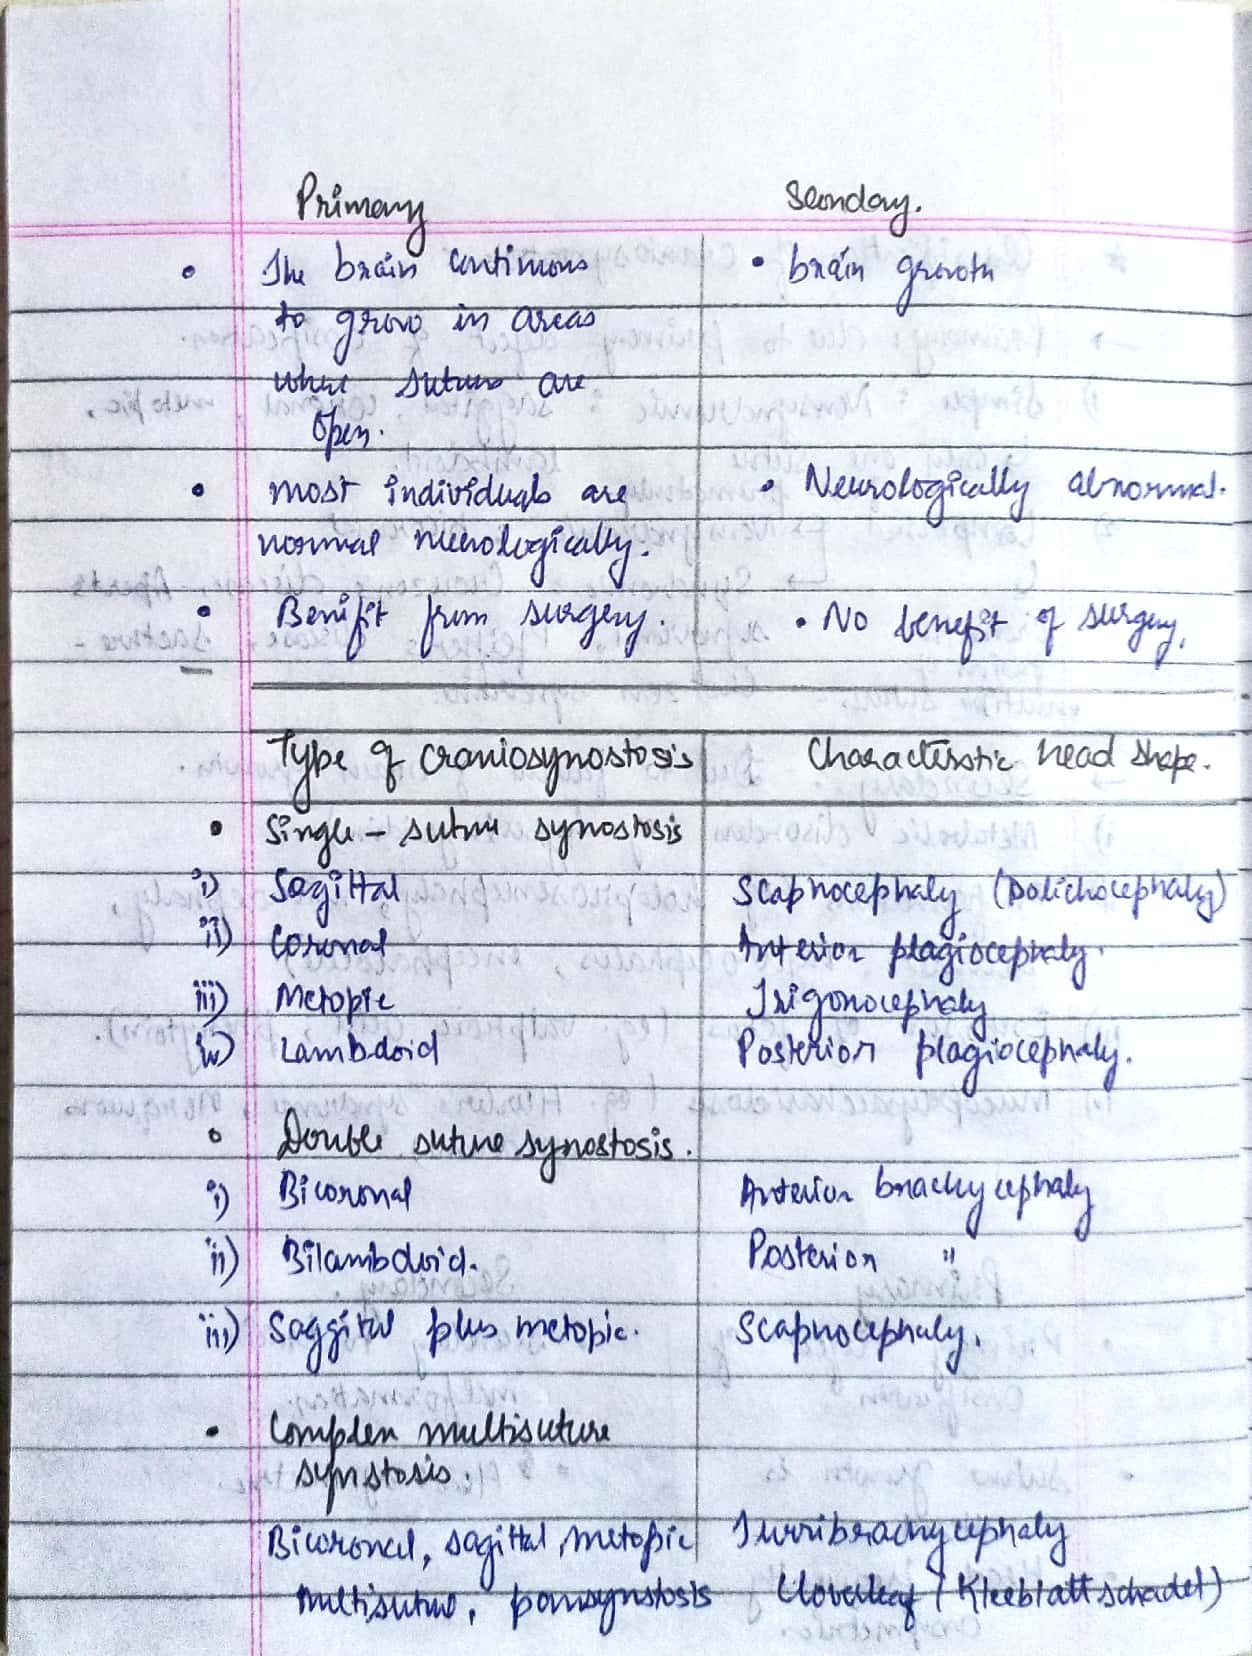 Primary Seconday.
• The brain continous • brain growth
to grow in areas
where sutures are
open.
• most individuals are • Neurologically abnormal.
normal neurologically.
• Benifit from surgery. • No benefit of surgery.
Type of craniosynostosis Characteristic head shape.
• Single - suture synostosis
i) Sagittal Scaphocephaly (Dolichocephaly)
ii) Coronal Anterior plagiocephaly.
iii) Metopic Trigonocephaly
iv) Lambdoid Posterior plagiocephaly.
• Double suture synostosis.
i) Bicoronal Anterior brachycephaly
ii) Bilambdoid. Posterior "
iii) Saggital plus metopic. Scaphocephaly.
• Complex multisuture
synstosis.
Bicoronal, sagittal, metopic Turribrachycephaly
Multisuture, pansynstosis Cloverleaf (Kleeblattschadel)